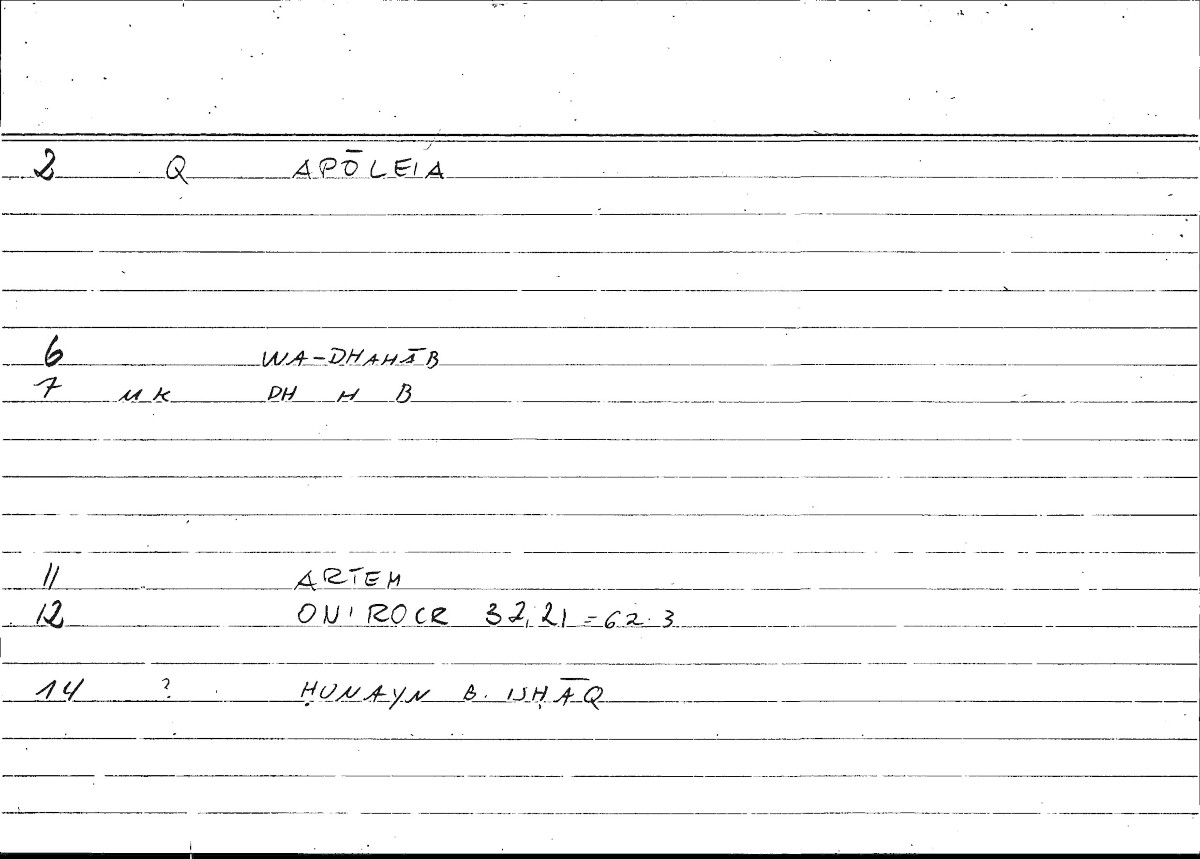 2 Q APŌLEIA
6 WA-DHAHĀB
7 MK DH H B
11 ARTEM
12 ONIROCR 32,21 = 62.3
14 ? ḤUNAYN B. ISḤĀQ